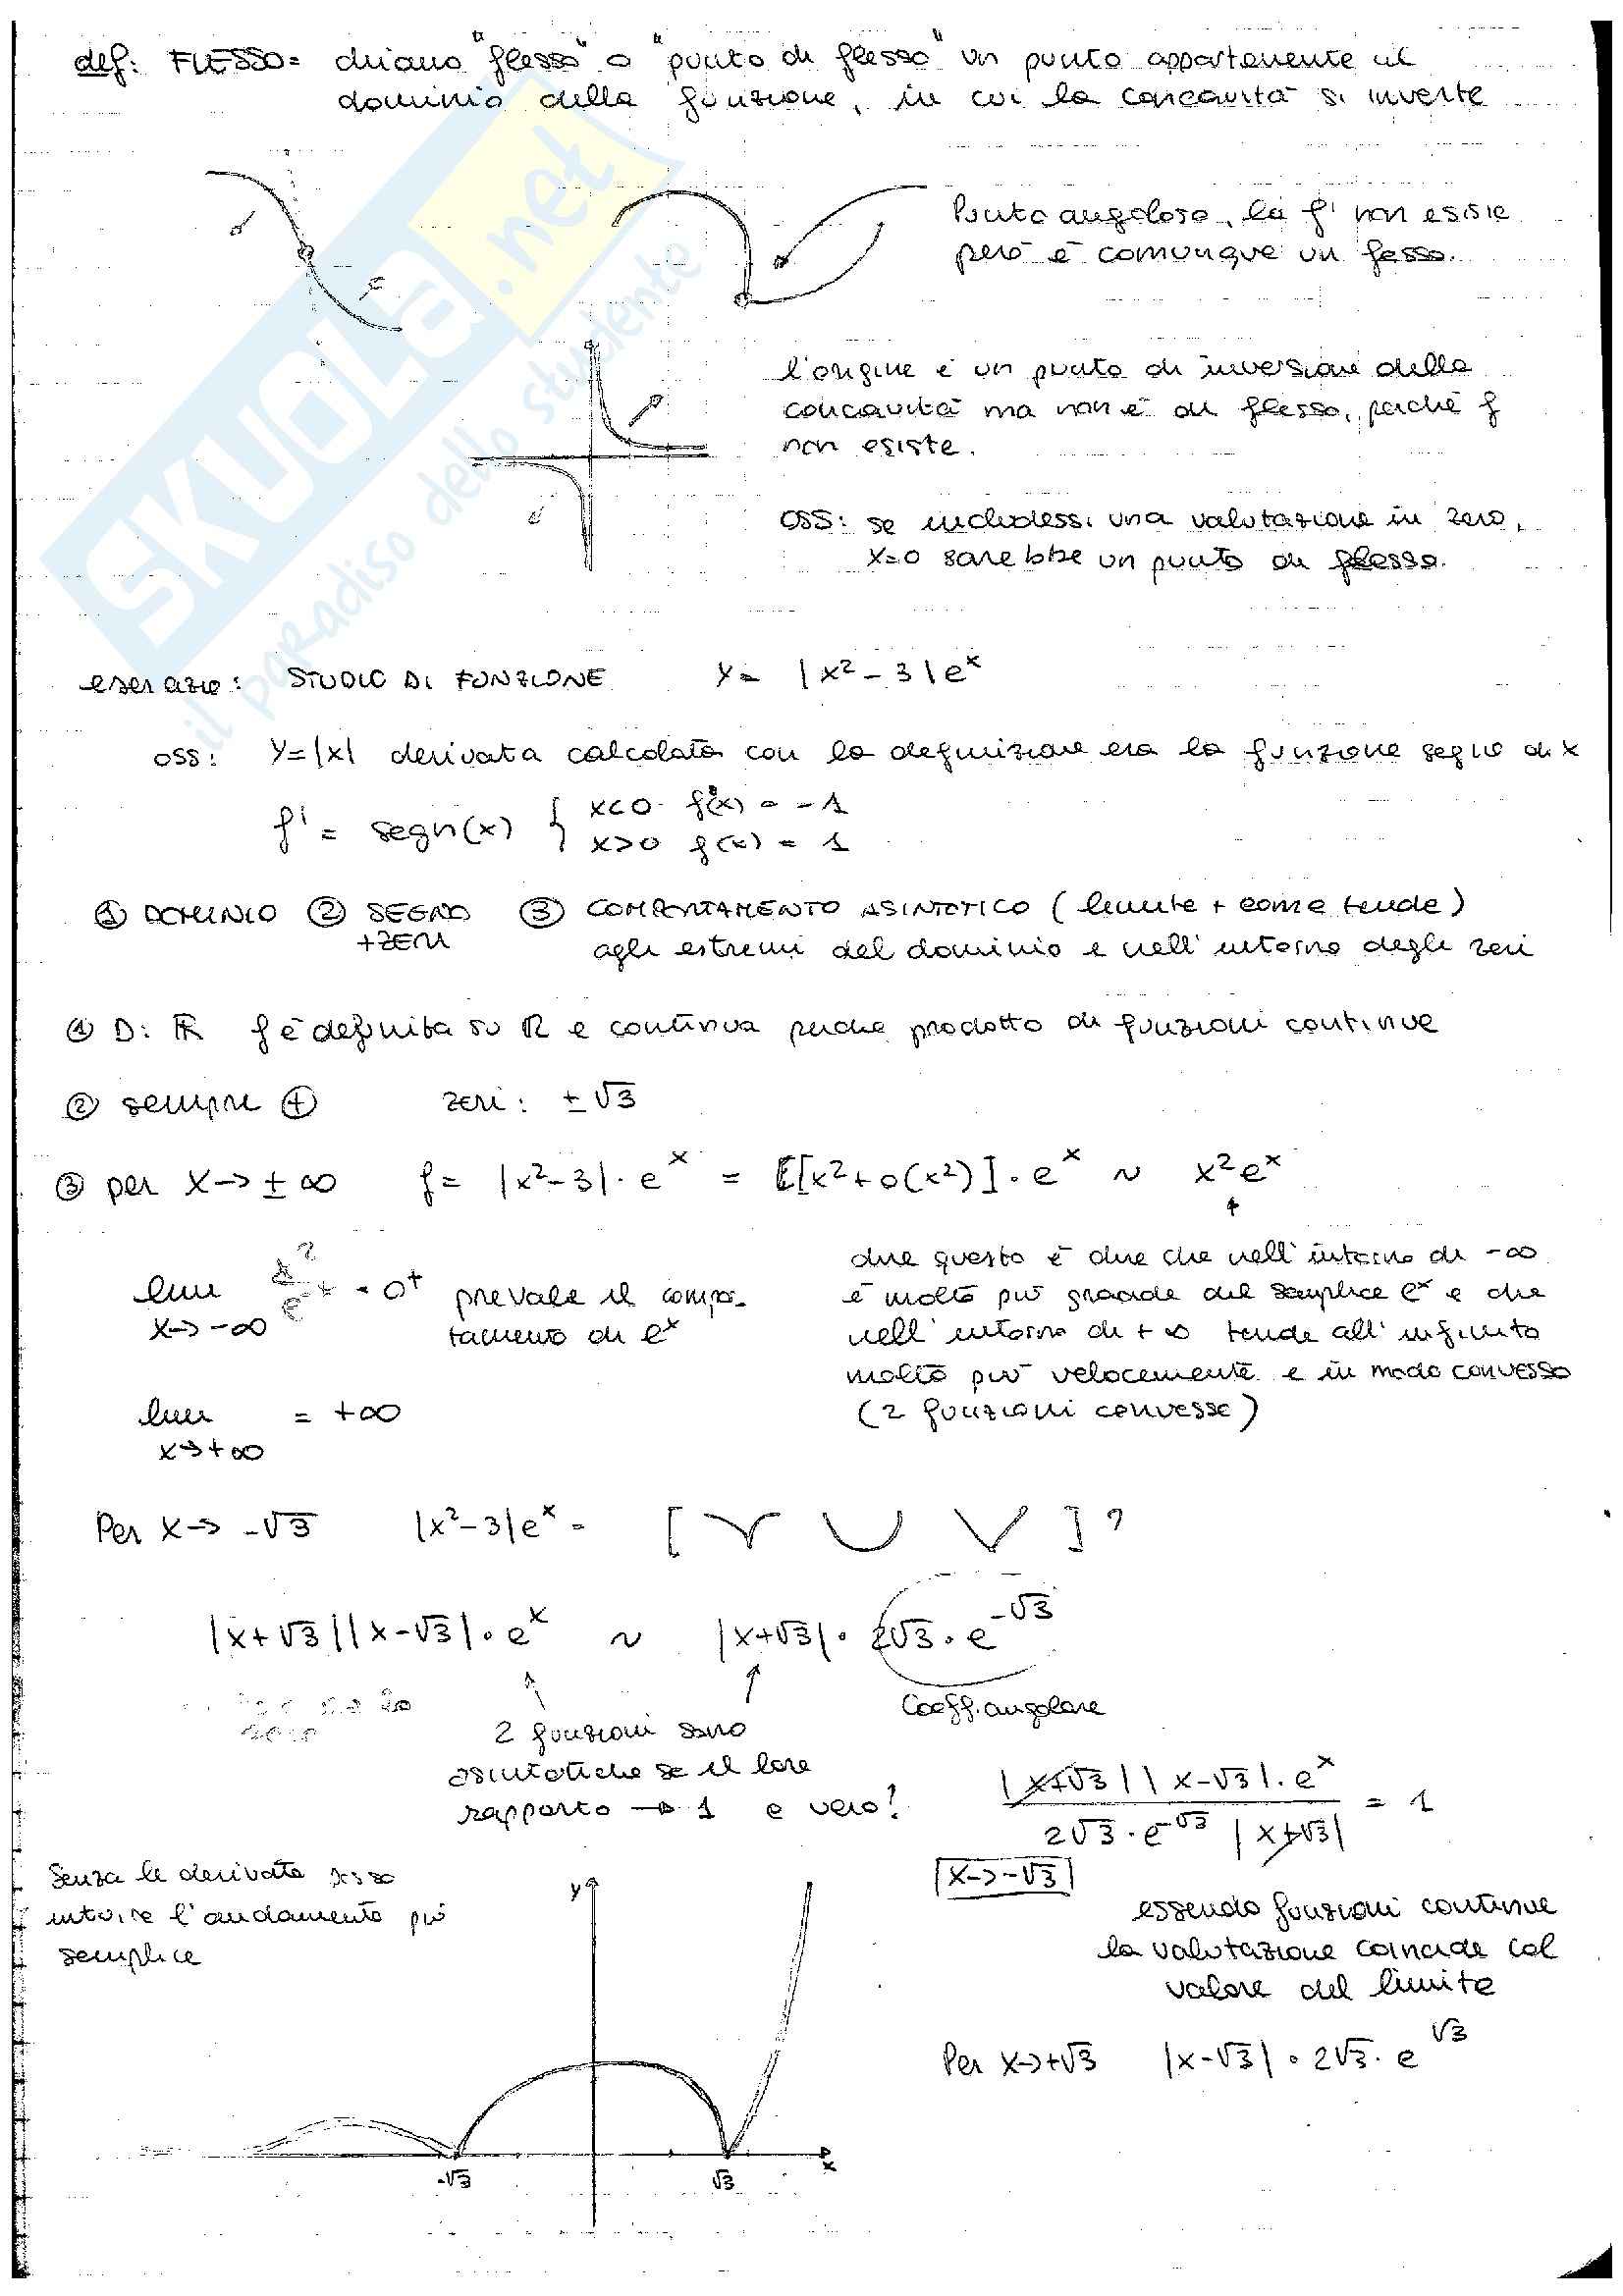 def: FLESSO= chiamo "flesso" o "punto di flesso" un punto appartenente al
dominio della funzione, in cui la concavità si inverte
Punto angoloso, la f' non esiste
però è comunque un flesso.
l'origine è un punto di inversione della
concavità ma non è di flesso, perché f
non esiste.
OSS: se includessi una valutazione in zero,
x=0 sarebbe un punto di flesso.
SKUOLA.net
il paradiso dello studente
esercizio: STUDIO DI FUNZIONE y= |x²-3|eˣ
OSS: y=|x| derivata calcolata con la definizione era la funzione segno di x
f' = segn(x) { x<0 f(x) = -1
x>0 f(x) = 1
① DOMINIO ② SEGNO ③ COMPORTAMENTO ASINTOTICO (limite + come tende)
+ZERI agli estremi del dominio e nell'intorno degli zeri
① D: ℝ f è definita su ℝ e continua perché prodotto di funzioni continue
② sempre ⊕ zeri: ±√3
③ per x→±∞ f= |x²-3|·eˣ = [x²+o(x²)]·eˣ ~ x²eˣ
lim x→-∞ = 0⁺ prevale il compor-
tamento di eˣ
dire questo è dire che nell'intorno di -∞
è molto più grande del semplice eˣ e che
nell'intorno di +∞ tende all'infinito
molto più velocemente e in modo convesso
(2 funzioni convesse)
lim x→+∞ = +∞
Per x→ -√3 |x²-3|eˣ = [ ]?
|x+√3||x-√3|·eˣ ~ |x+√3|·2√3·e^-√3
Coeff. angolare
2 funzioni sono
asintotiche se il loro
rapporto → 1 è vero?
|x+√3||x-√3|·eˣ / 2√3·e^-√3 |x+√3| = 1
x→-√3
essendo funzioni continue
la valutazione coincide col
valore del limite
Senza le derivate posso
intuire l'andamento più
semplice
Per x→+√3 |x-√3|·2√3·e^√3
y
x
-√3
√3